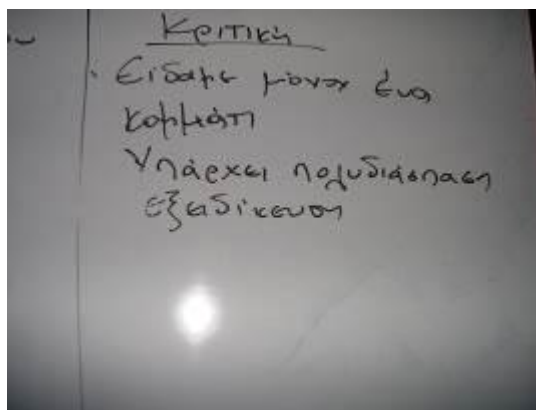 Κριτική
· Είδαμε μόνον ένα
κομμάτι
Υπάρχει πολυδιάσπαση
εξειδίκευση